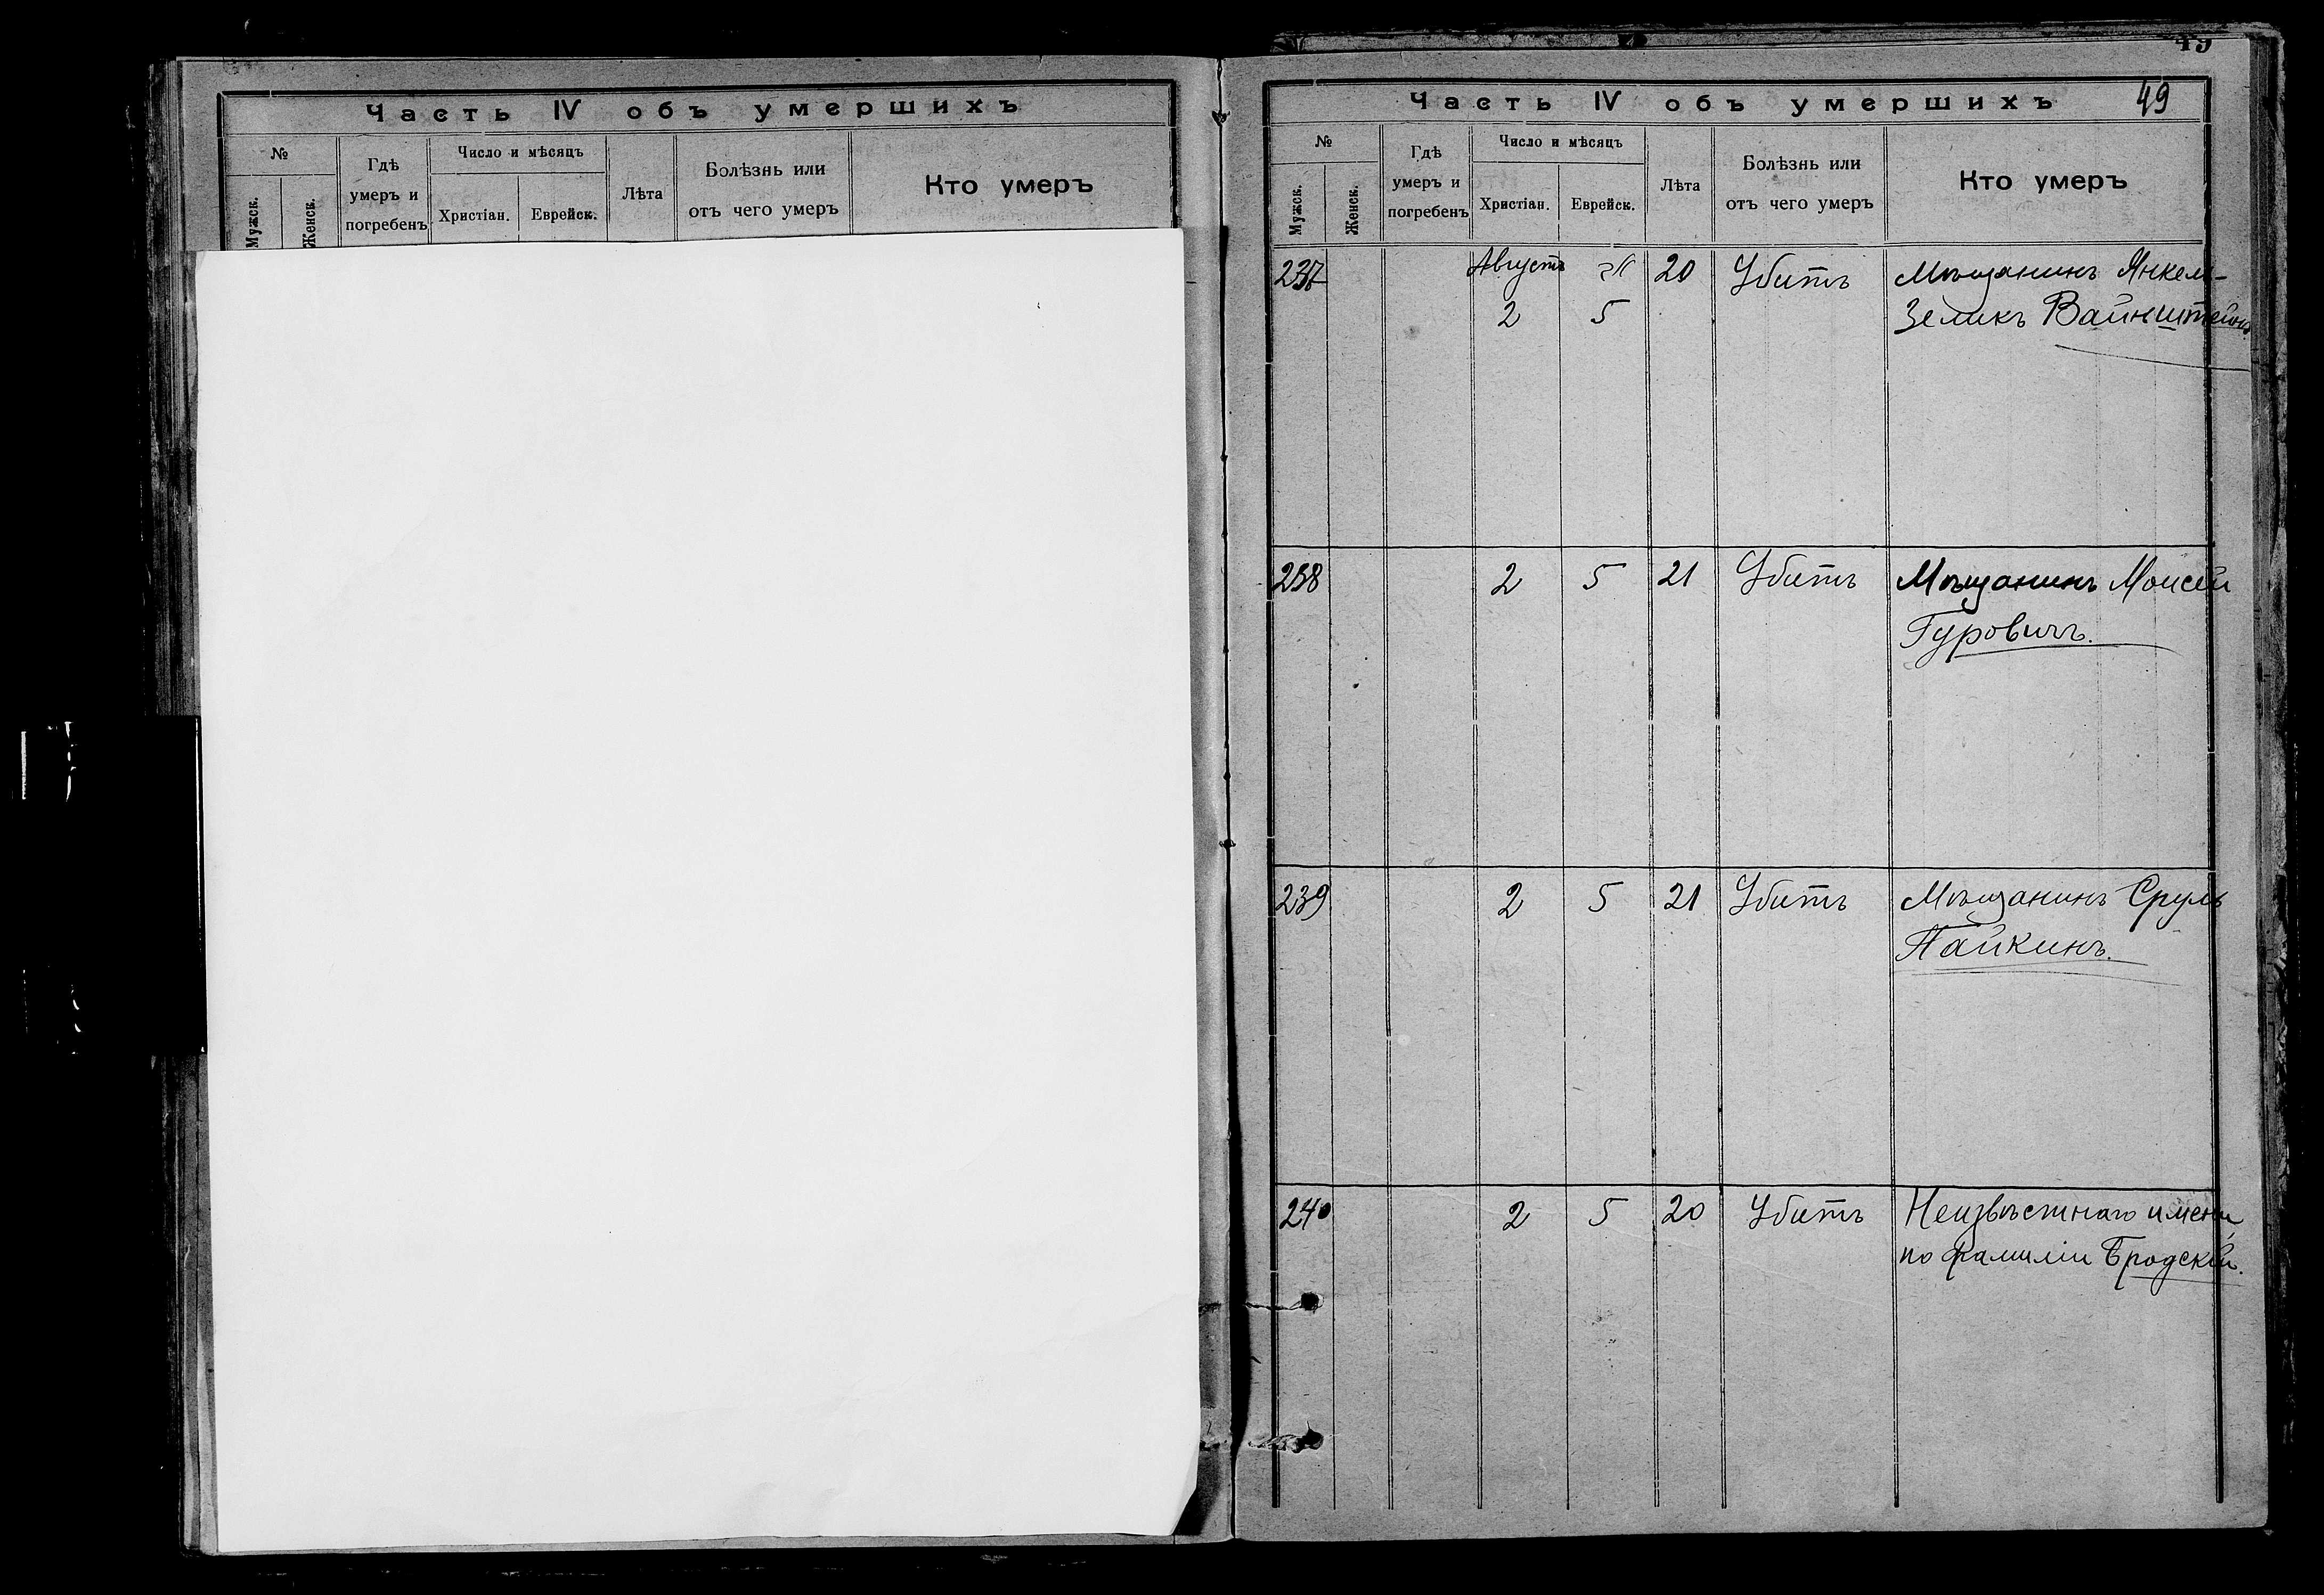 Часть IV объ умершихъ
№
Мужск.
Женск.
Гдѣ
умеръ и
погребенъ
Число и мѣсяцъ
Христіан.
Еврейск.
Лѣта
Болѣзнь или
отъ чего умеръ
Кто умеръ
49
Часть IV объ умершихъ
49
№
Мужск.
Женск.
Гдѣ
умеръ и
погребенъ
Число и мѣсяцъ
Христіан.
Еврейск.
Лѣта
Болѣзнь или
отъ чего умеръ
Кто умеръ
237 Августъ 20 Убитъ Мѣщанинъ Янкель-
2 5 Зеликъ Вайнштейнъ
238 2 5 21 Убитъ Мѣщанинъ Моисей
Гуровичъ.
239 2 5 21 Убитъ Мѣщанинъ Сруль
Пайкинъ.
240 2 5 20 Убитъ Неизвѣстнаго имени,
по фамиліи Бродскій.